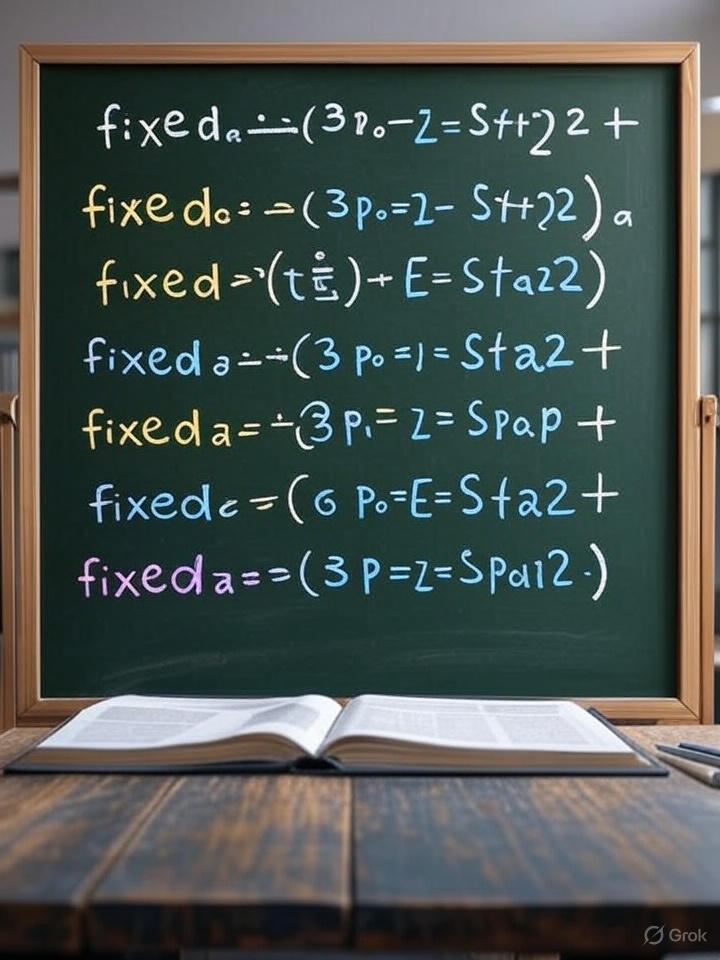 fixedₐ ÷ (3p₀-2=St+2)2+
fixed₀:=(3p₀=2-St+22)a
fixed=(t÷)+E=Sta22)
fixed a÷÷(3 p₀=)=Sta2+
fixed a=÷(3 p₁=2=Spap+
fixed c=(6 p₀=E=Sta2+
fixed a==(3 p=2=Spal2·)
Grok